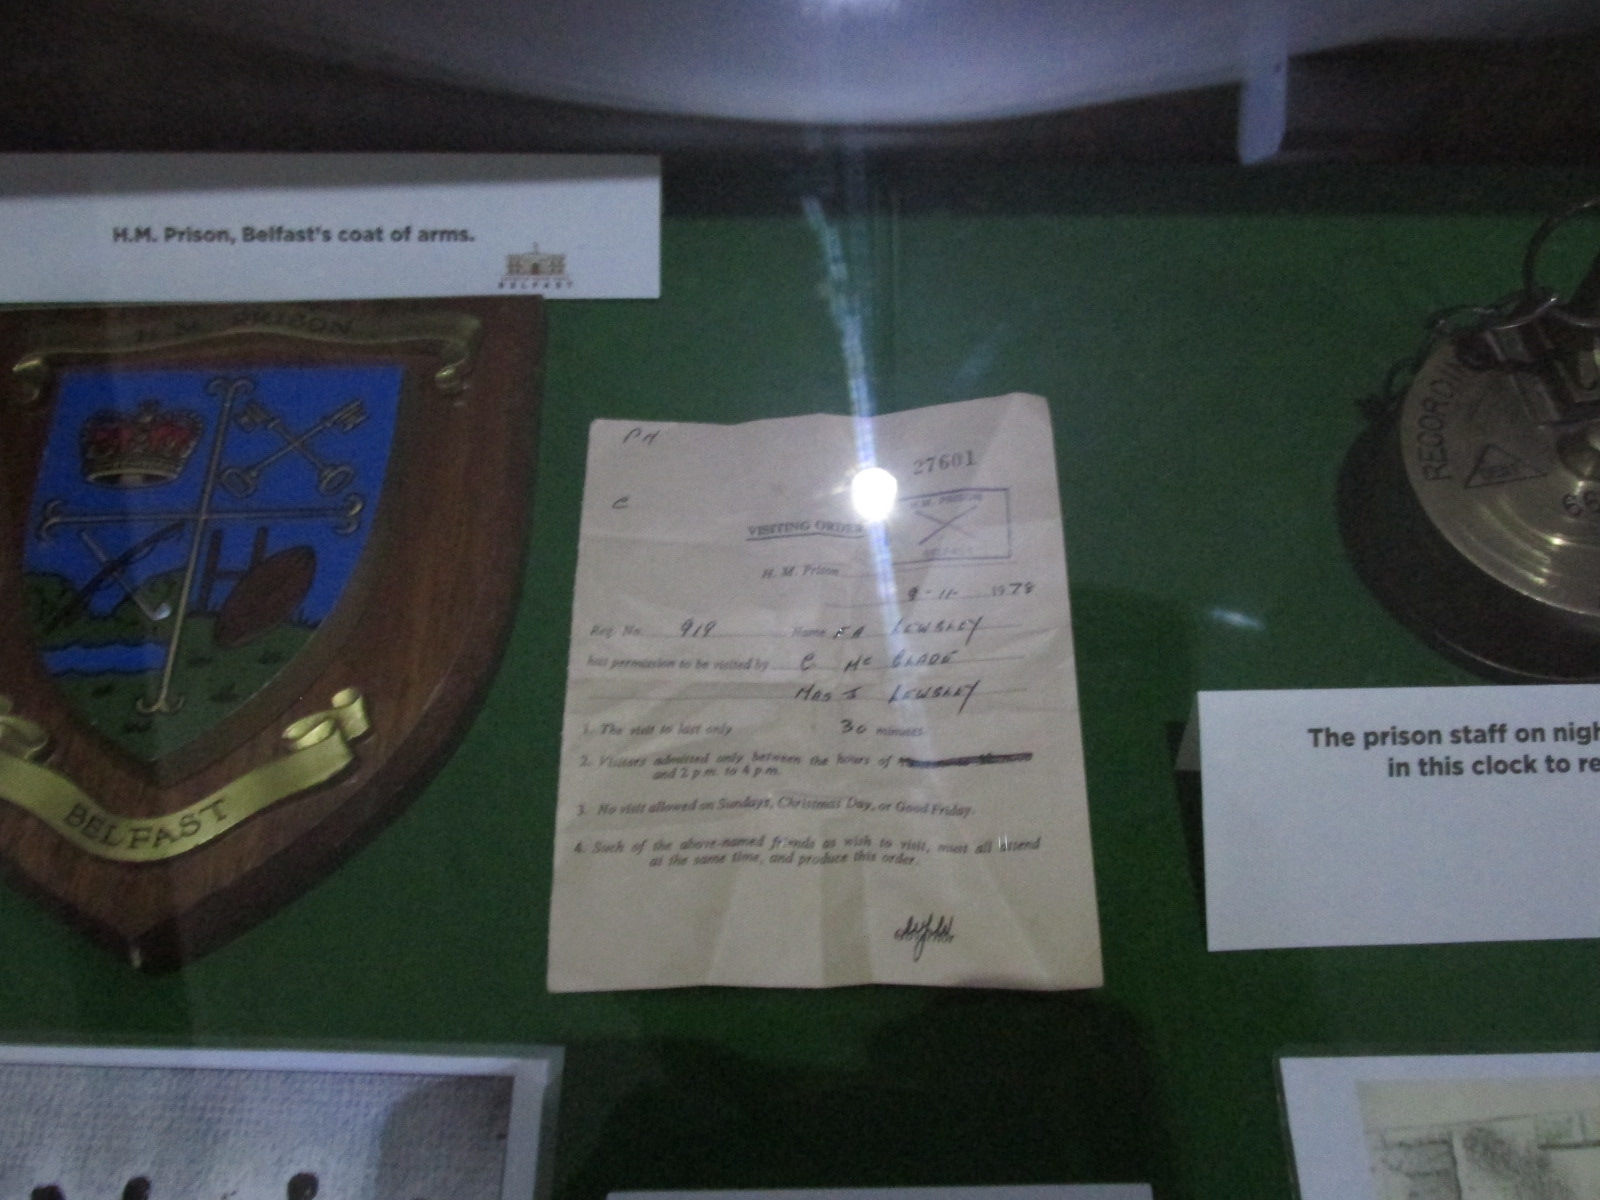 H.M. Prison, Belfast's coat of arms.
BELFAST
H.M. PRISON
BELFAST
PM
C
27601
H.M. PRISON
BELFAST
VISITING ORDER
H. M. Prison
9-11- 1978
Reg. No. 919 Name LEWSLEY
has permission to be visited by C Mc GLADE
MRS J LEWSLEY
1. The visit to last only 30 minutes.
2. Visitors admitted only between the hours of
and 2 p.m. to 4 p.m.
3. No visit allowed on Sundays, Christmas Day, or Good Friday.
4. Such of the above-named friends as wish to visit, must all attend
at the same time, and produce this order.
RECORDIN
The prison staff on nigh
in this clock to re